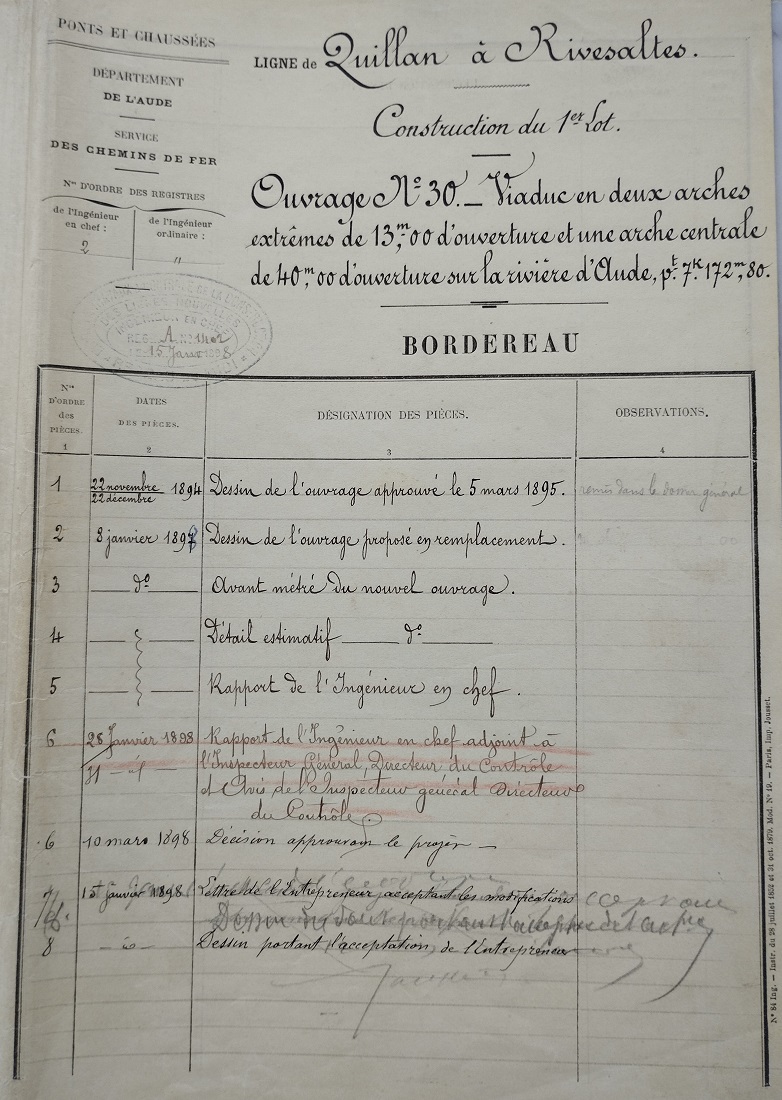 PONTS ET CHAUSSÉES
DÉPARTEMENT
DE L'AUDE
SERVICE
DES CHEMINS DE FER
Nos D'ORDRE DES REGISTRES
de l'Ingénieur en chef :
2
de l'Ingénieur ordinaire :
"
LIGNE de Quillan à Rivesaltes.
Construction du 1er Lot.
Ouvrage No 30. _ Viaduc en deux arches
extrêmes de 13,m00 d'ouverture et une arche centrale
de 40,m00 d'ouverture sur la rivière d'Aude, pt. 7k.172m,80.
REG. A. No 1402
15 Janv 1898
BORDEREAU
Nos D'ORDRE des PIÈCES.
DATES DES PIÈCES.
DÉSIGNATION DES PIÈCES.
OBSERVATIONS.
1 2 3 4
1 22 novembre / 22 décembre 1894 Dessin de l'ouvrage approuvé le 5 mars 1895. remis dans le dossier général
2 8 janvier 1898 Dessin de l'ouvrage proposé en remplacement.
3 — do — Avant métré du nouvel ouvrage.
4 Détail estimatif — do —
5 Rapport de l'Ingénieur en chef.
6 28 Janvier 1898 Rapport de l'Ingénieur en chef adjoint à
31 — id l'Inspecteur Général, Directeur du Contrôle
et Avis de l'Inspecteur général Directeur
du Contrôle.
6 10 mars 1898 Décision approuvant le projet —
7 15 janvier 1898 Lettre de l'Entrepreneur acceptant les modifications
8 — id — Dessin portant l'acceptation de l'Entrepreneur
No 84 Ing. — Instr. du 28 juillet 1852 et 31 oct. 1879. Mod. No 19. — Paris, Imp. Jousset.